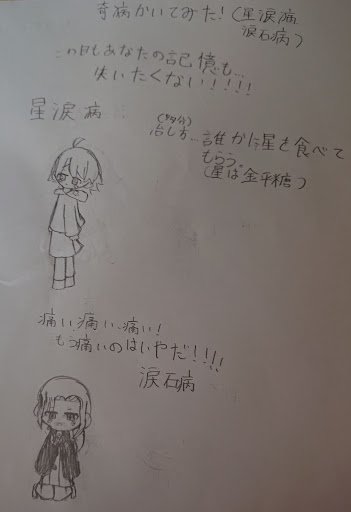 奇病かいてみた!(星涙病
涙石病)
この目もあなたの記憶も…
失いたくない!!!!
星涙病
(多分)
治し方…誰かに星を食べて
もらう。
(星は金平糖)
痛い、痛い、痛い!
もう痛いのはいやだ!!!!
涙石病